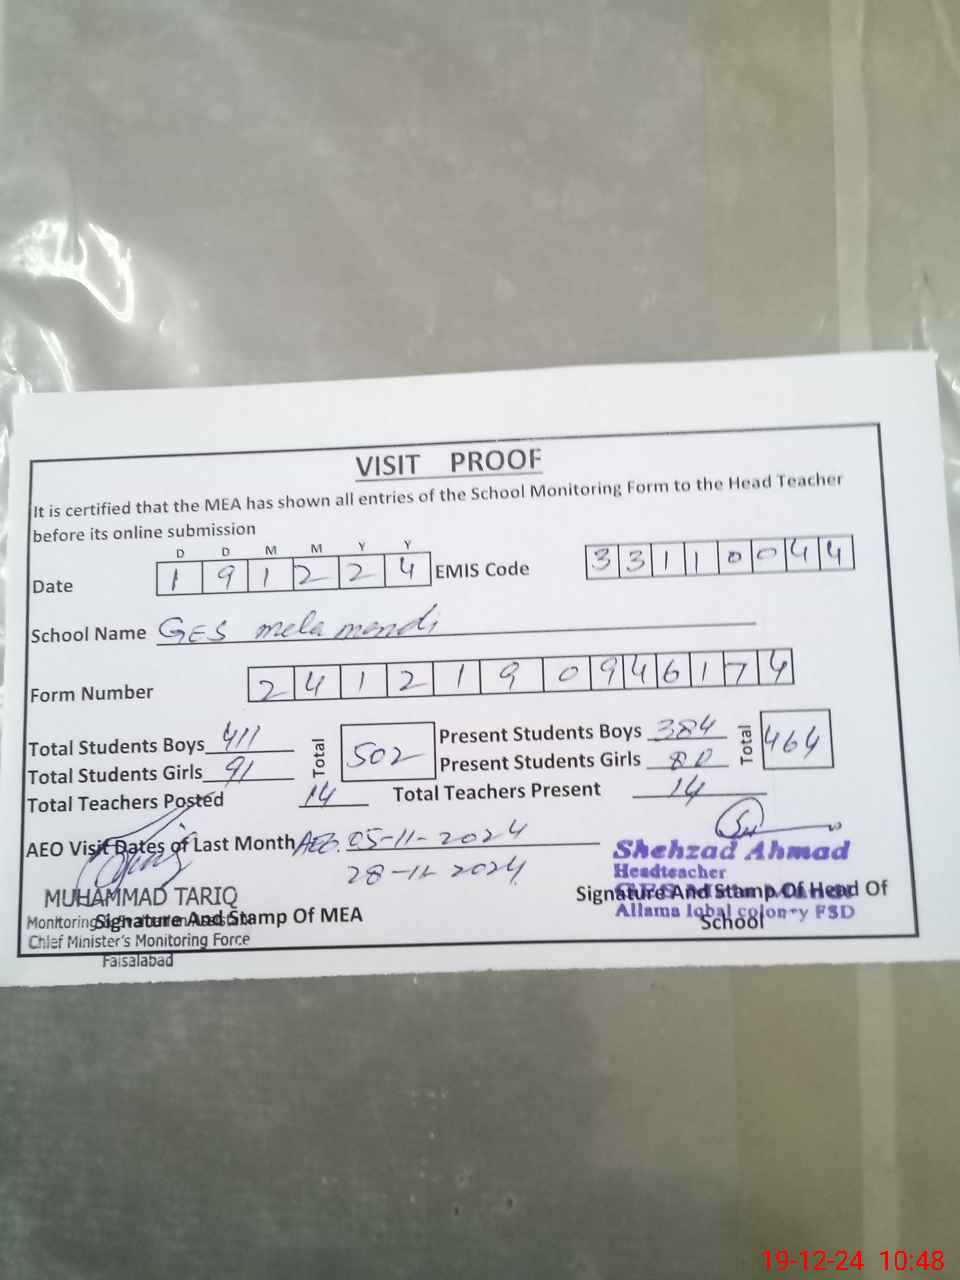 VISIT PROOF
It is certified that the MEA has shown all entries of the School Monitoring Form to the Head Teacher
before its online submission
D D M M Y Y
Date 1 9 1 2 2 4 EMIS Code 3 3 1 1 0 0 4 4
School Name GES mela mandi
Form Number 2 4 1 2 1 9 0 9 4 6 1 7 4
Total Students Boys 411 Total 502 Present Students Boys 384 Total 464
Total Students Girls 91 Present Students Girls 80
Total Teachers Posted 14 Total Teachers Present 14
AEO Visit Dates of Last Month AEO. 05-11-2024
28-11-2024
Shehzad Ahmad
Headteacher
MUHAMMAD TARIQ
Signature And Stamp Of Head Of
School
Allama Iqbal colony FSD
Monitoring
Signature And Stamp Of MEA
Chief Minister's Monitoring Force
Faisalabad
19-12-24 10:48